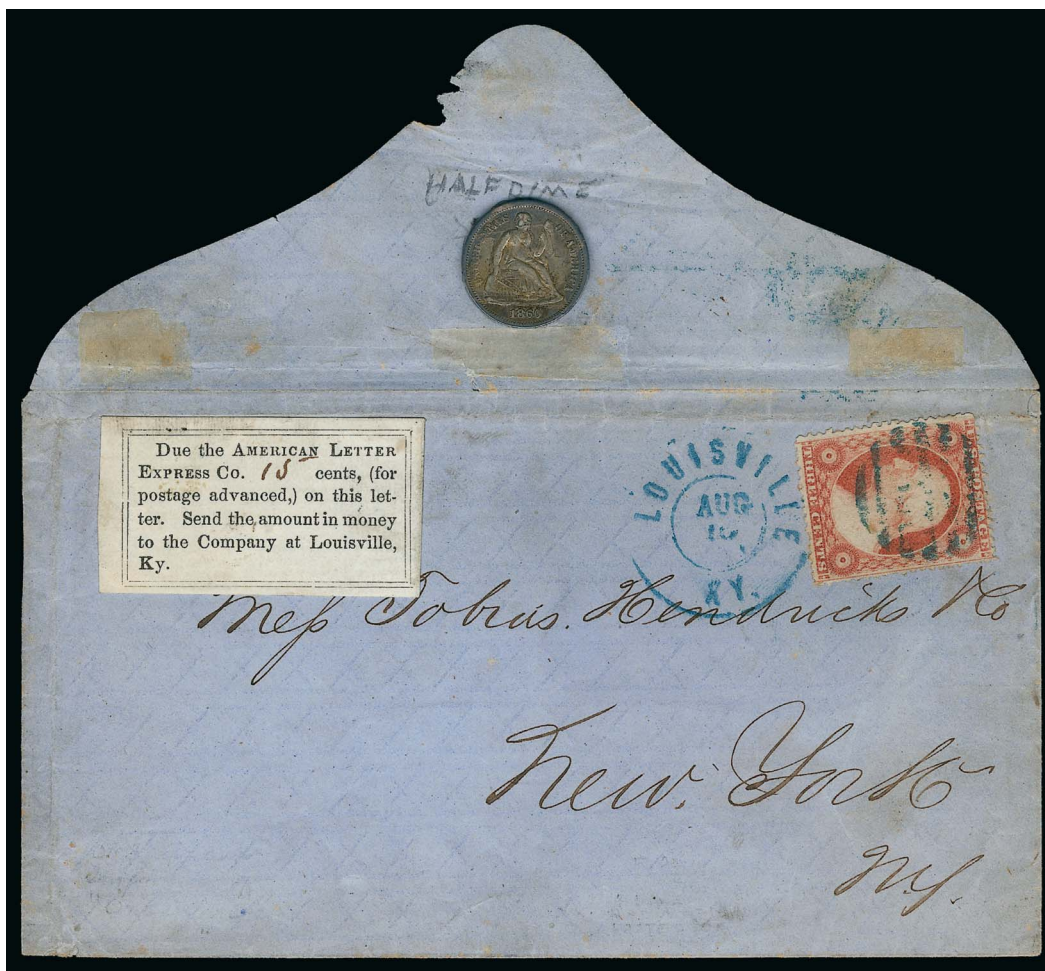 HALF DIME
1860
Due the AMERICAN LETTER
EXPRESS CO. 15 cents, (for
postage advanced,) on this let-
ter. Send the amount in money
to the Company at Louisville,
Ky.
LOUISVILLE
AUG
KY.
THREE CENTS
Mess Tobias. Hendricks & Co
New. York
N.Y.